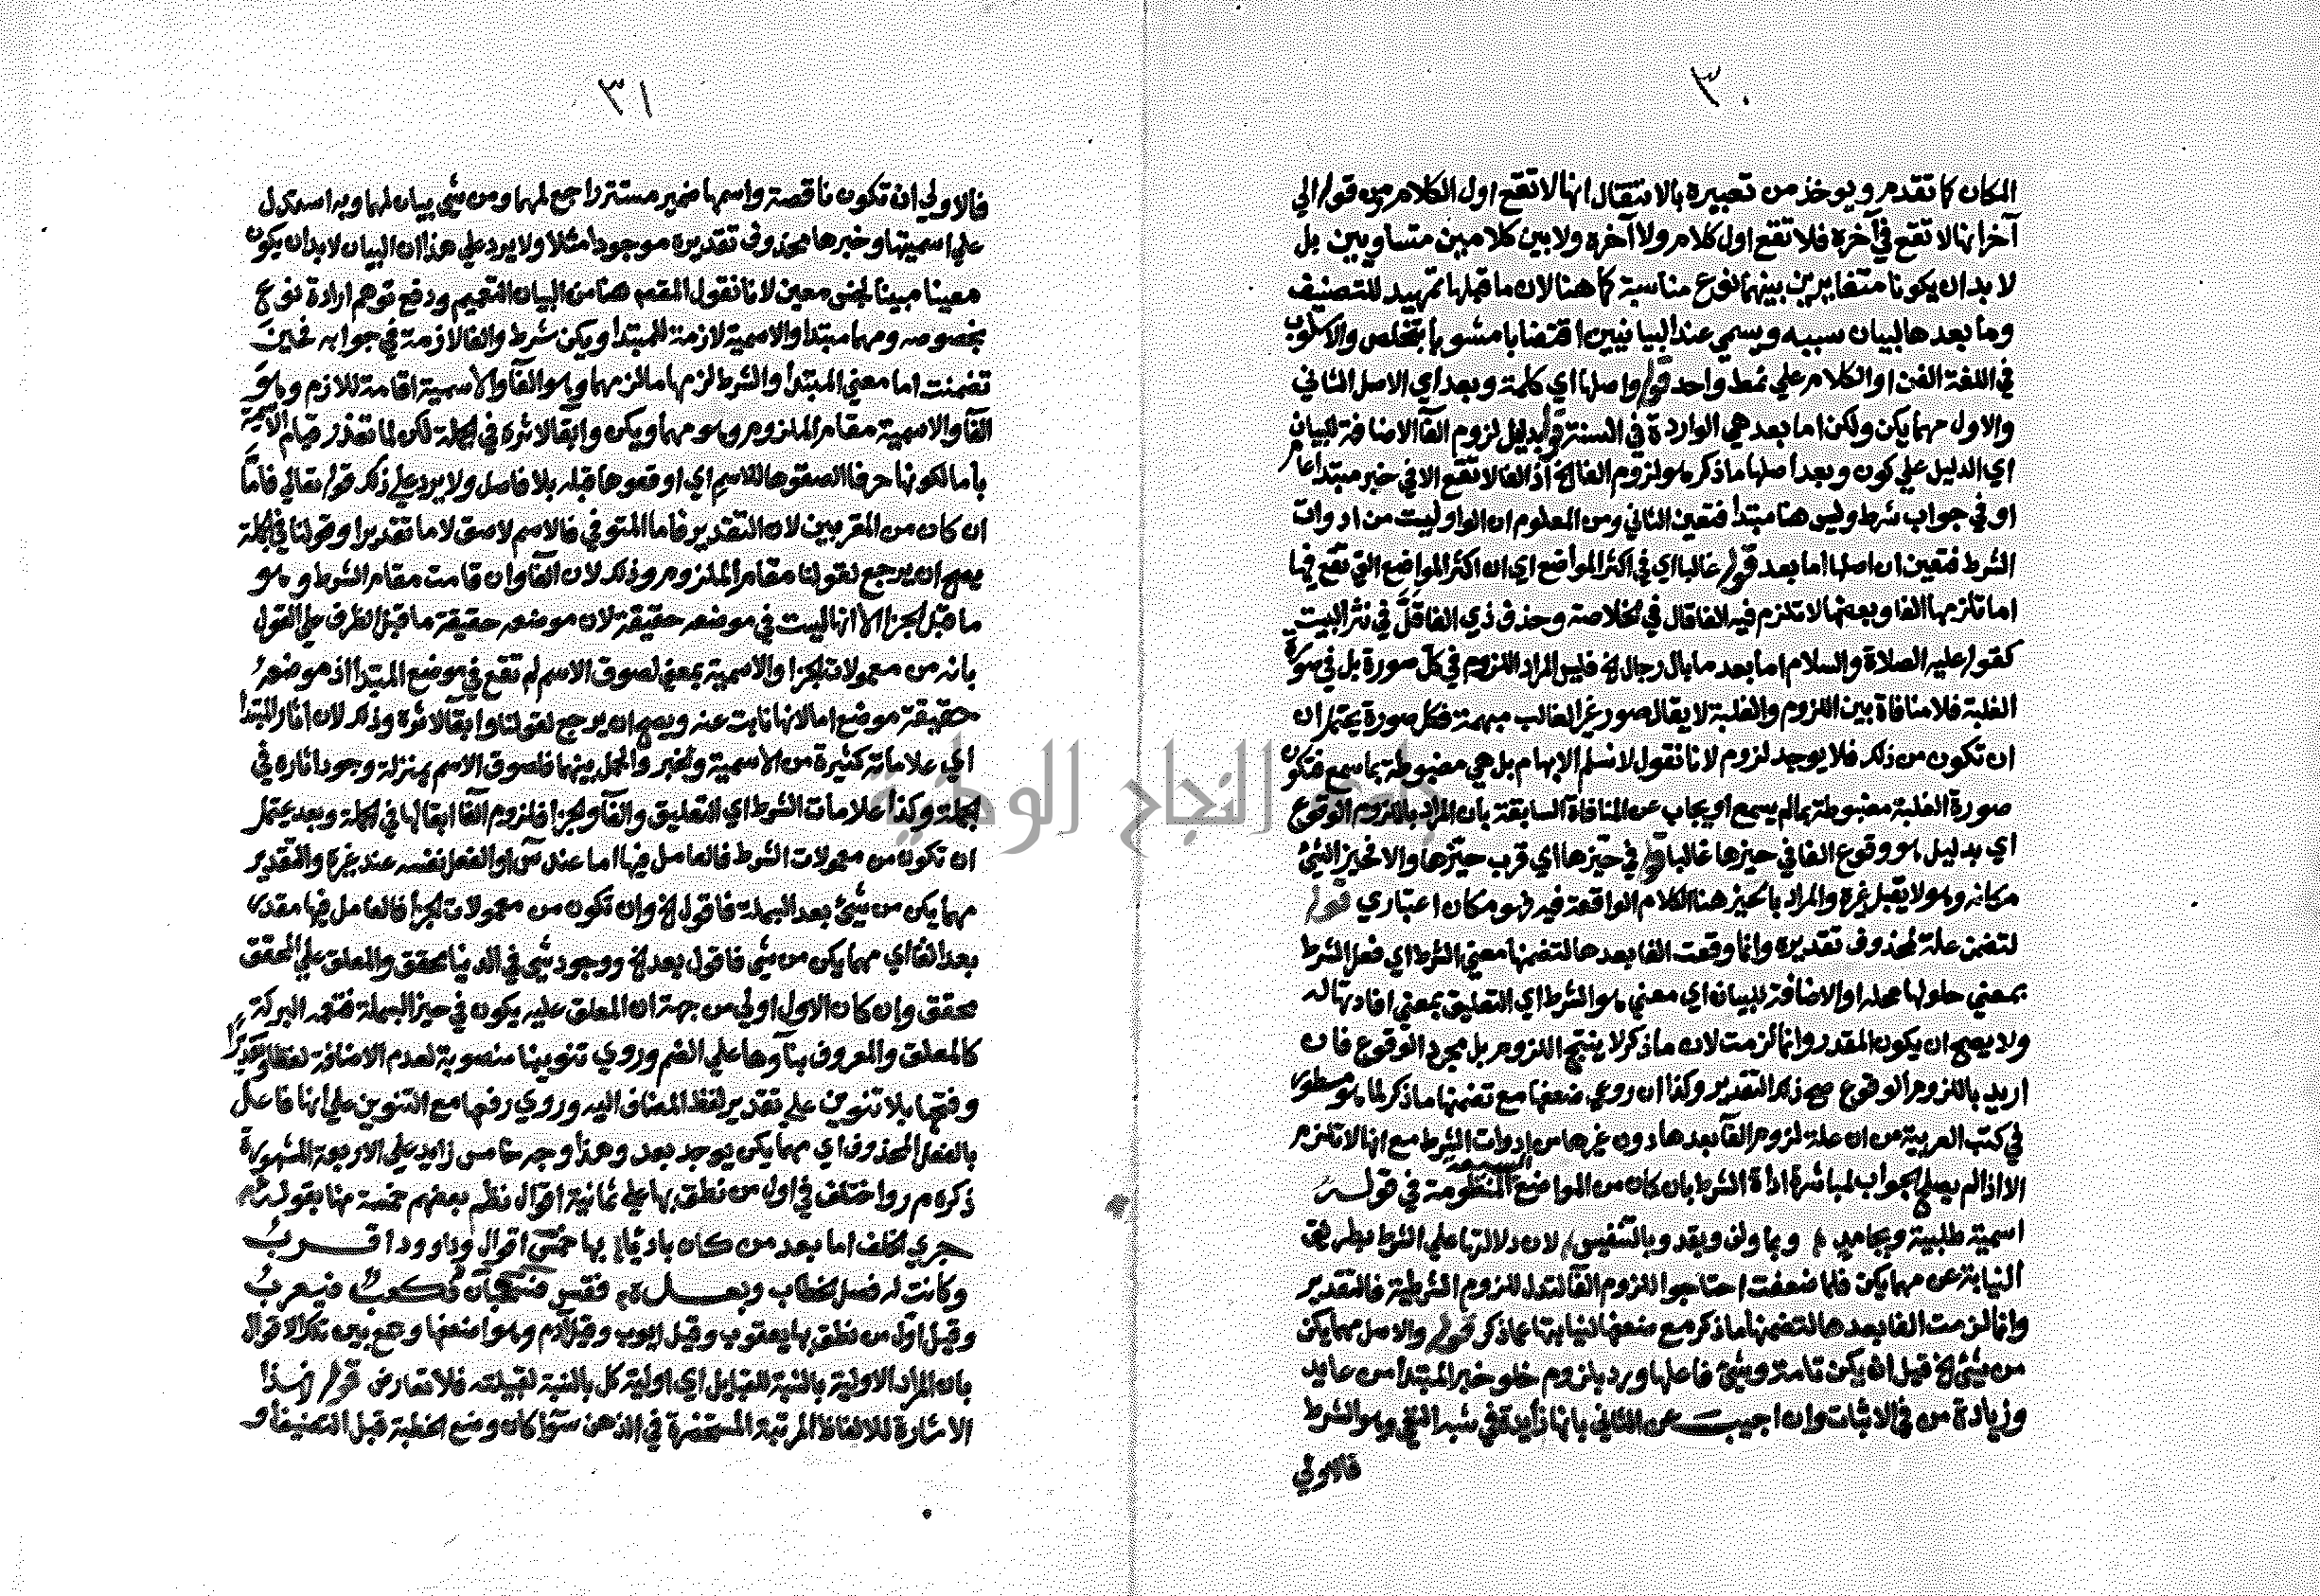 ٣٠
المكان كما تقدم ويوخذ من تعبيره بالانتقال انها لا تقع اول الكلام ومن قوله الي
آخر انها لا تقع في آخره فلا تقع اول كلام ولا آخره ولا بين كلامين متساويين بل
لا بد ان يكونا متغايرين بينهما نوع مناسبة كما هنا لان ما قبلها تمهيد للتصنيف
وما بعدها لبيان سببه ويسمي عند البيانيين اقتضابا مشوبا بتخلص والاسلوب
في اللغة الفن او الكلام علي نمط واحد قوله واصلها اي كلمة وبعد اي الاصل الثاني
والاول مهما يكن ولكن اما بعد هي الواردة في السنة قوله بدليل لزوم الفآ الاضافة للبيان
اي الدليل علي كون وبعد اصلها ما ذكر هو لزوم الفا الخ اذ الفا لا تقع الا في خبر مبتدا عام
او في جواب شرط وليس هنا مبتدأ فتعين الثاني ومن المعلوم ان الواو ليست من ادوات
الشرط فتعين ان اصلها اما بعد قوله غالبا اي في اكثر المواضع اي ان اكثر المواضع التي تقع فيها
اما تلزمها الفا وبعضها لا تلزم فيه الفا قال في الخلاصة وحذف ذي الفا قلّ في نثر البيت
كقوله عليه الصلاة والسلام اما بعد ما بال رجال الخ فليس المراد اللزوم في كل صورة بل في صورة
الغلبة فلا منافاة بين اللزوم والغلبة لا يقال صور غير الغالب مبهمة فكل صورة يحتمل ان
ان تكون من ذلك فلا يوجد لزوم لانا نقول لا نسلم الابهام بل هي مضبوطة بما سمع فتكون
صورة الغلبة مضبوطة بما لم يسمع او يجاب عن المنافاة السابقة بان المراد باللزوم الوقوع
اي بدليل هو وقوع الفا في حيزها غالبا قوله في حيزها اي قرب حيزها والا فحيز الشيئ
مكانه وهو لا يقبل غيره والمراد بالحيز هنا الكلام الواقعة فيه فهو مكان اعتباري قوله
لتضمن علة لمحذوف تقديره وانما وقعت الفا بعدها لتضمنها معني الشرط اي فعل الشرط
بمعني حلولها محله او الاضافة للبيان اي معني هو الشرط اي التعليق بمعني افادتها له
ولا يصح ان يكون المقدر وانما لزمت لان ما ذكر لا ينتج اللزوم بل مجرد الوقوع فان
اريد باللزوم الوقوع صح ذلك التقدير وكذا ان روعي ضعفها مع تضمنها ما ذكر لما هو مسطور
في كتب العربية من ان علة لزوم الفآ بعدها دون غيرها من ادوات الشرط مع انها لا تلزم
الا اذا لم يصلح الجواب لمباشرة اداة الشرط بان كان من المواضع السبعة المنظومة في قوله
اسمية طلبية وبجامد وبما ولن وبقد وبالتنفيس لان دلالتها علي الشرط بطريق
النيابة عن مهما يكن فلما ضعفت احتاجوا للزوم الفآ لتدل للزوم الشرطية فالتقدير
وانما لزمت الفا بعدها لتضمنها ما ذكر مع ضعفها لنيابتها عما ذكر قوله والاصل مهما يكن
من شيئ الخ قيل ان يكن تامة وشيئ فاعلها ورد بلزوم خلو خبر المبتدأ من عايد
وزيادة من في الاثبات وان اجيب عن الثاني بانها زايدة في شبه النفي وهو الشرط
فالاولي
٣١
فالاولي ان تكون ناقصة واسمها ضمير مستتر راجع لمهما ومن شيئ بيان لمهما وبه استدل
علي اسميتها وخبرها محذوف تقديره موجودا مثلا ولا يرد علي هذا ان البيان لا بد ان يكون
معينا مبينا لجنس معين لانا نقول المقصود هنا من البيان التعميم ودفع توهم ارادة نوع
بخصوصه ومهما مبتدا والاسمية لازمة للمبتدأ ويكن شرط والفا لازمة في جوابه فحين
تضمنت اما معني المبتدأ والشرط لزمها ما لزمهما وهو الفآ والاسمية اقامة للازم وهو
الفآ والاسمية مقام الملزوم وهو مهما ويكن وابقآ لاثره في الجملة لكن لما تعذر قيام الاسمية
باما لكونها حرفا الصقوها للاسم اي اوقعوها قبله بلا فاصل ولا يرد علي ذلك قوله تعالي فاما
ان كان من المقربين لان التقدير فاما المتوفي فالاسم لاصق لاما تقديرا وقولنا في الجملة
يصح ان يرجع لقولنا مقام الملزوم وذلك لان الفآ وان قامت مقام الشرط وهو
ما قبل الجزا الا انها ليست في موضعه حقيقة لان موضعه حقيقة ما قبل الظرف علي القول
بانه من معمولات الجزا والاسمية بمعني لصوق الاسم لم تقع في موضع المبتدا اذ موضعه
حقيقة موضع اما لانها نابت عنه ويصح ان يرجع لقولنا وابقآ لاثره وذلك لان اثار المبتدأ
اي علاماته كثيرة من الاسمية والخبر والحمل بينهما فلصوق الاسم بمنزلة وجود اثاره في
الجملة وكذا علامات الشرط اي التعليق والفآ والجزا فلزوم الفآ ابقا لها في الجملة وبعد يحتمل
ان تكون من معمولات الشرط فالعامل فيها اما عند س او الفعل نفسه عند غيره والتقدير
مهما يكن من شيئ بعد البسملة فاقول الخ وان تكون من معمولات الجزا فالعامل فيها مقدر
بعد الفا اي مهما يكن من شيئ فاقول بعد الخ ووجود شيئ في الدنيا محقق والمعلق علي المحقق
محقق وان كان الاول اولي من جهة ان المعلق عليه يكون في حيز البسملة فتعمه البركة
كالمعلق والمعروف بنآوها علي الضم وروي تنوينها منصوبة لعدم الاضافة لفظا وتقديرا
وفتحها بلا تنوين علي تقدير لفظ المضاف اليه وروي رفعها مع التنوين علي انها فاعل
بالفعل المحذوف اي مهما يكن يوجد بعد وهذا وجه خامس زايد علي الاربعة المشهورة
ذكره م ر واختلف في اول من نطق بها علي ثمانية اقوال نظم بعضهم خمسة منها بقوله
جري الخلف اما بعد من كان باديا بها خمس اقوال وداوود اقرب
وكانت له فصل الخطاب وبعده فقس فسحبان فكعب فيعرب
وقيل اول من نطق بها يعقوب وقيل ايوب وقيل آدم وهو اضعفها وجمع بين تلك الاقوال
بان المراد الاولية بالنسبة للقبايل اي اولية كل بالنسبة لقبيلته فلا تعارض قوله فهذا
الاشارة للالفاظ المرتبة المستحضرة في الذهن سوآ كان وضع الخطبة قبل التصنيف او
جامعة النجاح الوطنية